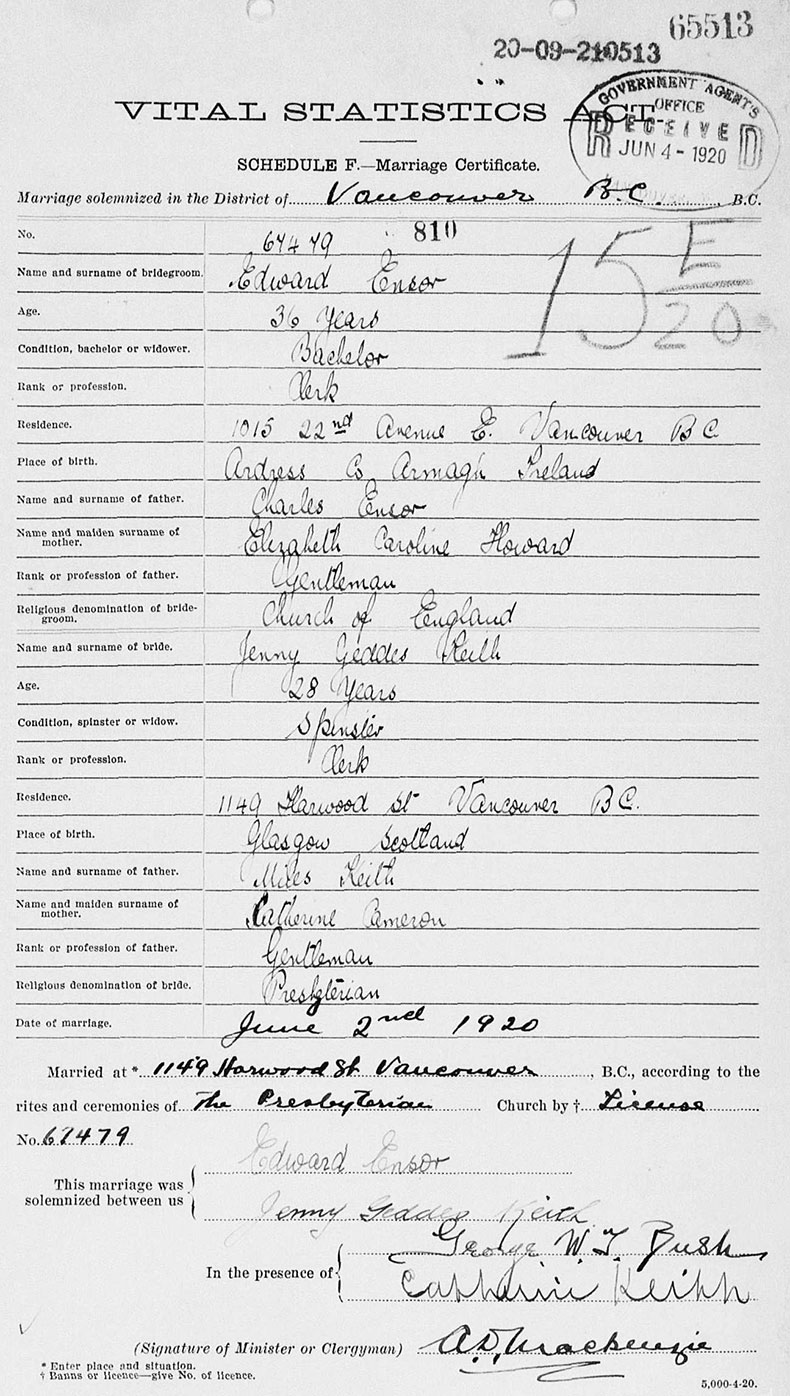 65513
20-09-210513
VITAL STATISTICS ACT.
GOVERNMENT AGENT'S
OFFICE
RECEIVED
JUN 4 - 1920
SCHEDULE F.—Marriage Certificate.
Marriage solemnized in the District of Vancouver B.C. , B.C.
No. 67479 810
15 E/20
Name and surname of bridegroom. Edward Ensor
Age. 36 Years
Condition, bachelor or widower. Bachelor
Rank or profession. Clerk
Residence. 1015 22nd Avenue E. Vancouver B C
Place of birth. Ardress Co Armagh Ireland
Name and surname of father. Charles Ensor
Name and maiden surname of
mother. Elizabeth Caroline Howard
Rank or profession of father. Gentleman
Religious denomination of bride-
groom. Church of England
Name and surname of bride. Jenny Geddes Keith
Age. 28 Years
Condition, spinster or widow. Spinster
Rank or profession. Clerk
Residence. 1149 Harwood St Vancouver B C.
Place of birth. Glasgow Scotland
Name and surname of father. Miles Keith
Name and maiden surname of
mother. Catherine Cameron
Rank or profession of father. Gentleman
Religious denomination of bride. Presbyterian
Date of marriage. June 2nd 1920
Married at * 1149 Harwood St. Vancouver , B.C., according to the
rites and ceremonies of The Presbyterian Church by † License
No. 67479
Edward Ensor
This marriage was
solemnized between us
Jenny Geddes Keith
George W. T. Bush
In the presence of
Catherine Keith
(Signature of Minister or Clergyman) A.D. Mackenzie
* Enter place and situation.
† Banns or licence—give No. of licence.
5,000-4-20.